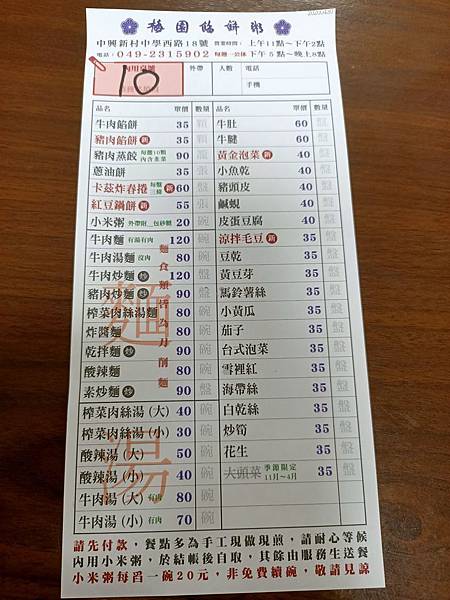 梅園餡餅粥
中興新村中學西路18號 營業時間：上午11點~下午2點
電話：049-2315902 每週一公休 下午5點~晚上8點
10 外帶 人數 電話
手機
品名 單價 數量 品名 單價 數量
牛肉餡餅 35 顆 牛肚 60 盤
豬肉餡餅 新 35 顆 牛腱 60 盤
豬肉蒸餃 每籠10顆 內含韭菜 90 籠 黃金泡菜 新 40 盤
蔥油餅 35 張 小魚乾 40 盤
卡茲炸春捲 每盤三條 新 60 盤 豬頭皮 40 盤
紅豆鍋餅 新 55 張 鹹蜆 40 盤
小米粥 外帶附__包砂糖 20 碗 皮蛋豆腐 40 盤
牛肉麵 有湯有肉 120 碗 涼拌毛豆 新 35 盤
牛肉湯麵 沒肉 80 碗 豆乾 35 盤
牛肉炒麵 炒 120 盤 黃豆芽 35 盤
豬肉炒麵 炒 90 盤 馬鈴薯絲 35 盤
榨菜肉絲湯麵 80 碗 小黃瓜 35 盤
炸醬麵 80 碗 茄子 35 盤
乾拌麵 炒 90 碗 台式泡菜 35 盤
酸辣麵 80 碗 雪裡紅 35 盤
素炒麵 炒 90 盤 海帶絲 35 盤
榨菜肉絲湯（大） 40 碗 白乾絲 35 盤
榨菜肉絲湯（小） 30 碗 炒筍 35 盤
酸辣湯（大） 50 碗 花生 35 盤
酸辣湯（小） 40 碗 大頭菜 季節限定 11月~4月 35 盤
牛肉湯（大） 有肉 80 碗
牛肉湯（小） 有肉 70 碗
麵食類皆為刀削麵
麵
湯
請先付款，餐點多為手工現做現煎，請耐心等候
內用小米粥，於結帳後自取，其餘由服務生送餐
小米粥每舀一碗20元，非免費續碗，敬請見諒